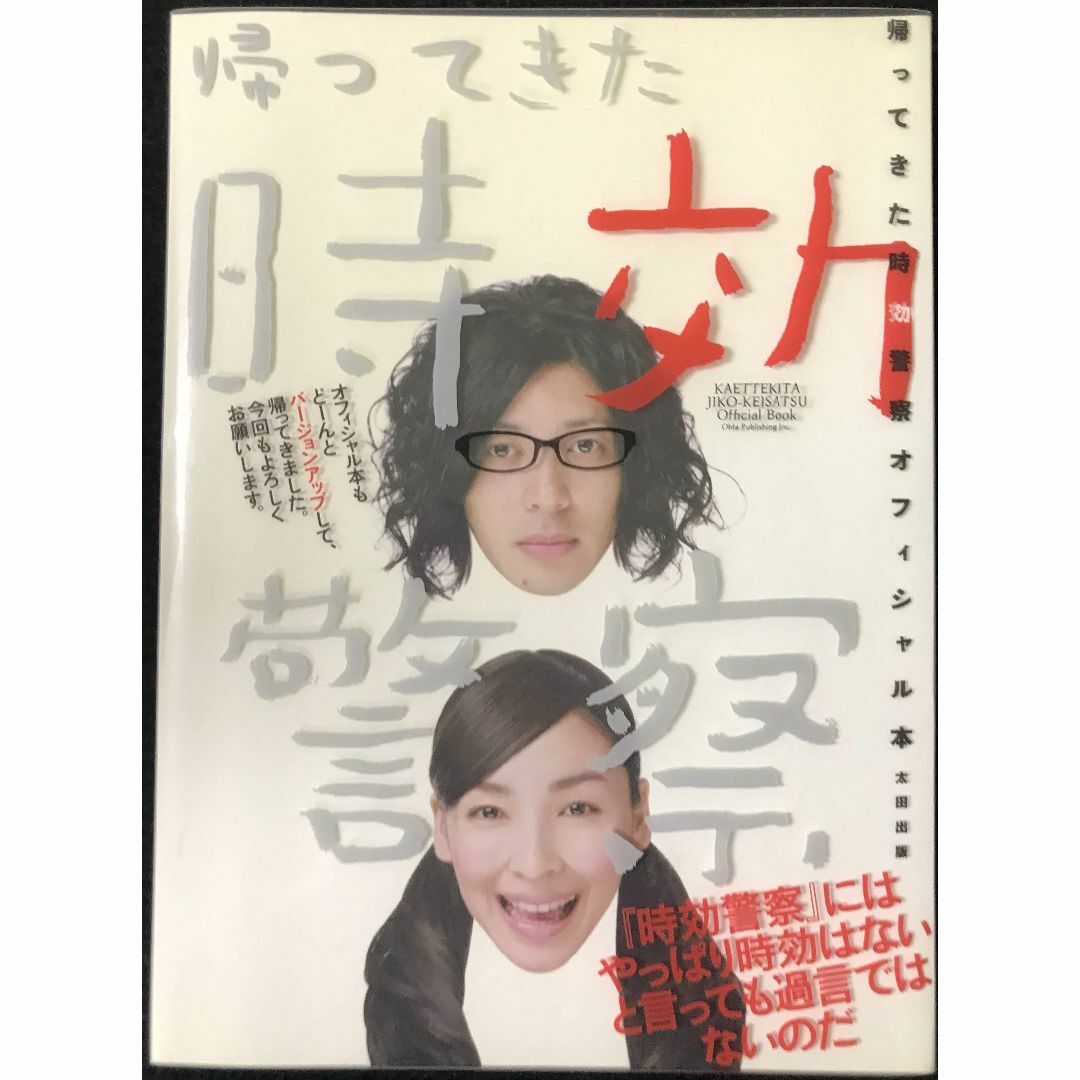 帰ってきた
時効
警察
オフィシャル本も
どーんと
バージョンアップして、
帰ってきました。
今回もよろしく
お願いします。
KAETTEKITA
JIKO-KEISATSU
Official Book
Ohta Publishing Inc.
帰ってきた時効警察オフィシャル本 太田出版
『時効警察』には
やっぱり時効はない
と言っても過言では
ないのだ